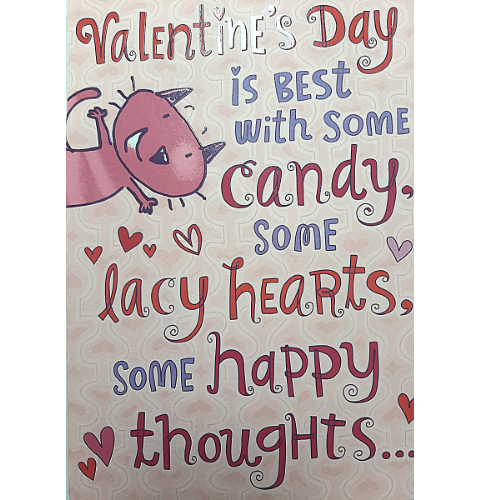 Valentine's Day
is BEST
with SOME
candy,
SOME
lacy heARTS,
SOME happy
thougHTS...